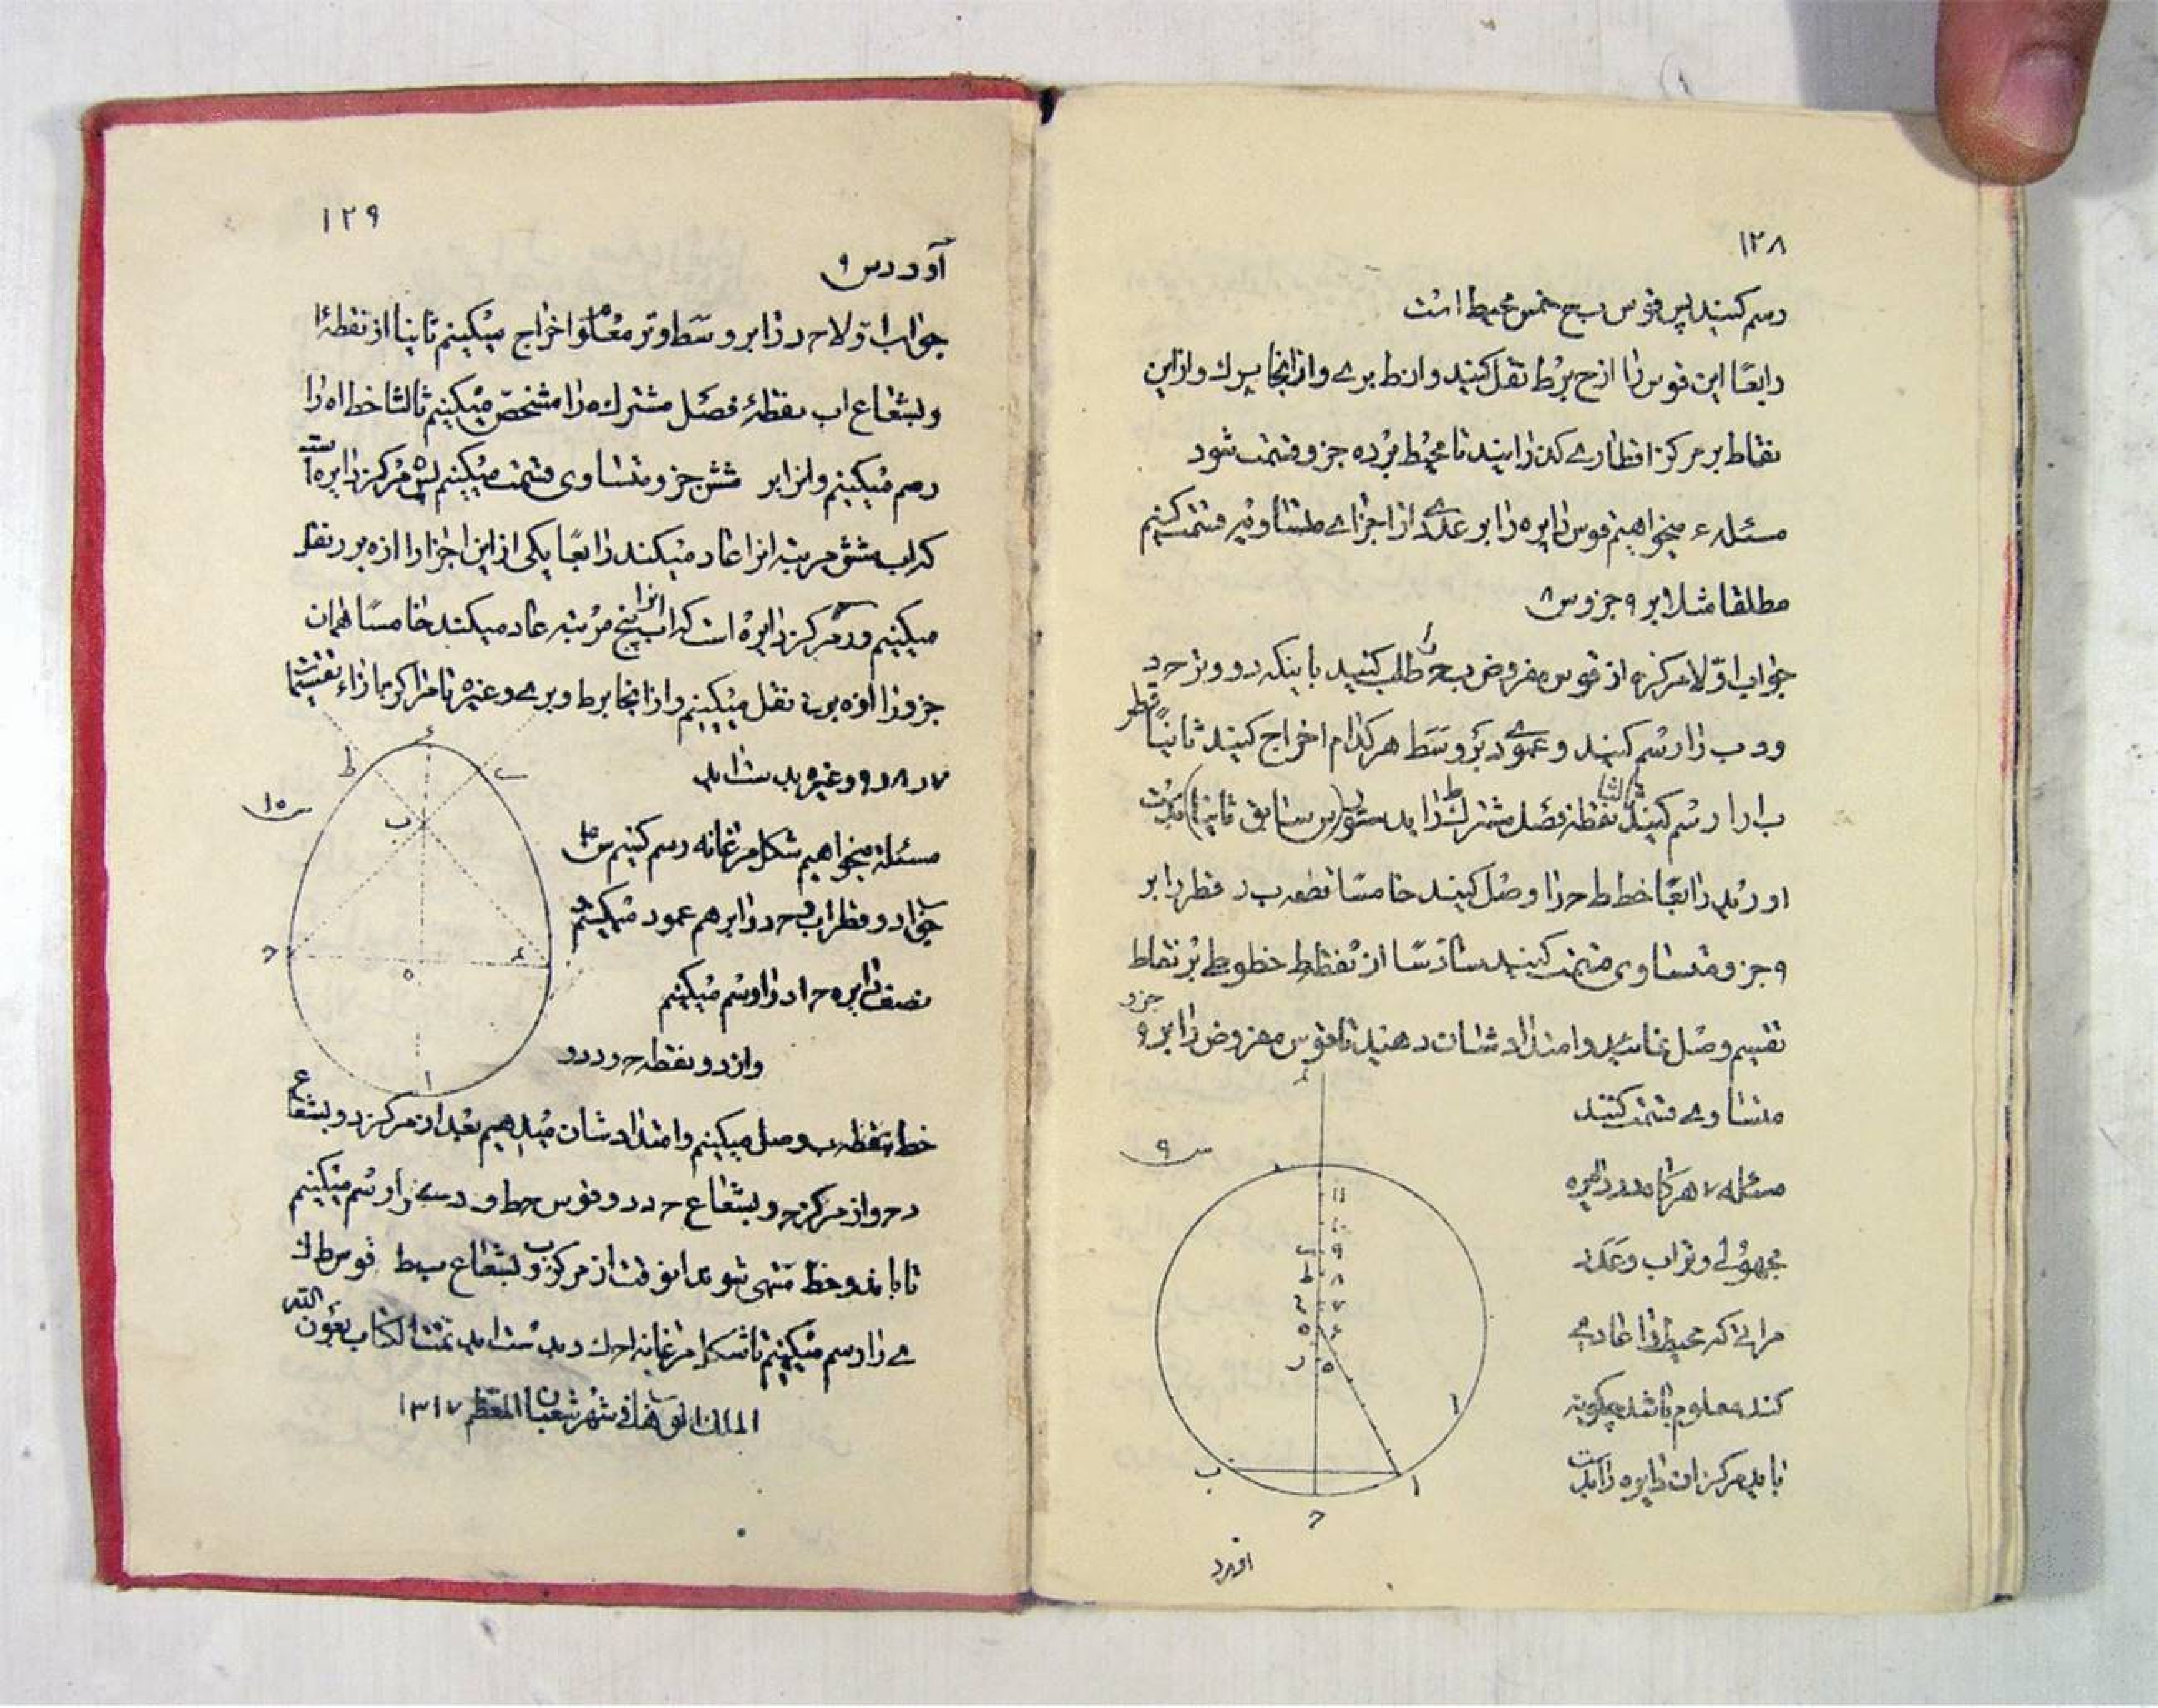 ۱۲۸
رسم کنید پس قوس ب ح خمس محیط است
رابعًا این قوس را از ح بر ط نقل کنید و از ط بر ے و از انجا بر ك و از این
نقاط بر مرکز اقطارے کذرانید تا محیط بر ده جزو قسمت شود
مسئله ء میخواهیم قوس دایره را بر عددے از اجزاے متساویه قسمت کنیم
مطلقا مثلا بر ۹ جزو س ۸
جواب اوّلا مرکز ه از قوس مفروض ب ح را طلب کنید باینکه دو وتر ح د
و د ب را رسم کنید و عمودے بر وسط هر کدام اخراج کنید ثانیًا قطر
ب ا را رسم کنید ثالثا نقطهٔ فصل مشترك ط را بدستور (س سابق ثانیا) بدست
اورید رابعًا خط ط ح را وصل کنید خامسًا قطعه ب ر قطر را بر
۹ جزو متساوی قسمت کنید سادسًا از نقطه ط خطوط بر نقاط
تقسیم وصل نمائید و امتداد شان دهید تا قوس مفروض را بر ۹ جزو
متساوے قسمت کنند
مسئله ۷ هرکاه در دایره
مجهولے وتر اب و عدد
مراتے که محیط را عاد مے
کند معلوم باشد چکونه
باید مرکز ان دایره را بدست
س ۹
۱۱
۱۰
۹
۸ ط
۷
ء ه
۵ ر
ا
ا
ب
ح
اورد
۱۲۹
آورد س ۹
جواب اوّلا ح د را بر وسط وتر معلوم اخراج میکنیم ثانیا از نقطهٔ ا
و بشعاع اب نقطهٔ فصل مشترك ه را مشخص میکنیم ثالثا خط اه را
رسم میکنیم و انرا بر شش جزو متساوی قسمت میکنیم پس ه مرکز دایره است
که اب شش مرتبه انرا عاد میکند رابعًا یکی از این اجزا را از ه بر ر نقل
میکنیم و ر مرکز دایره است که اب پنج مرتبه انرا عاد میکند خامسًا همان
جزو را از ه بر ح نقل میکنیم و از انجا بر ط و بر ے و غیره تا مراکز بازاء تقسیمات
۷ و ۸ و ۹ و غیره بدست اید
س ۱۰
ط
ب
ح
ه
ا
مسئله میخواهیم شکل مرغانه رسم کنیم س ۱۰
جواب دو قطر اب و ح د را بر هم عمود میکنیم
نصف دایره ح ا د را رسم میکنیم
و از دو نقطه ح و د دو
خط بنقطه ب وصل میکنیم و امتداد شان میدهیم بعد از مرکز د و بشعاع
د ح و از مرکز ح و بشعاع ح د دو قوس ح ط و د ے را رسم میکنیم
تا باند و خط منتهی شوند انوقت از مرکز ب و بشعاع ب ط قوس ط ك
ے را رسم میکنیم تا شکل مرغانه ا ح ك د بدست اید تمت الکتاب بعون الله
الملك الوهاب فی شهر شعبان المعظم ۱۳۱۷